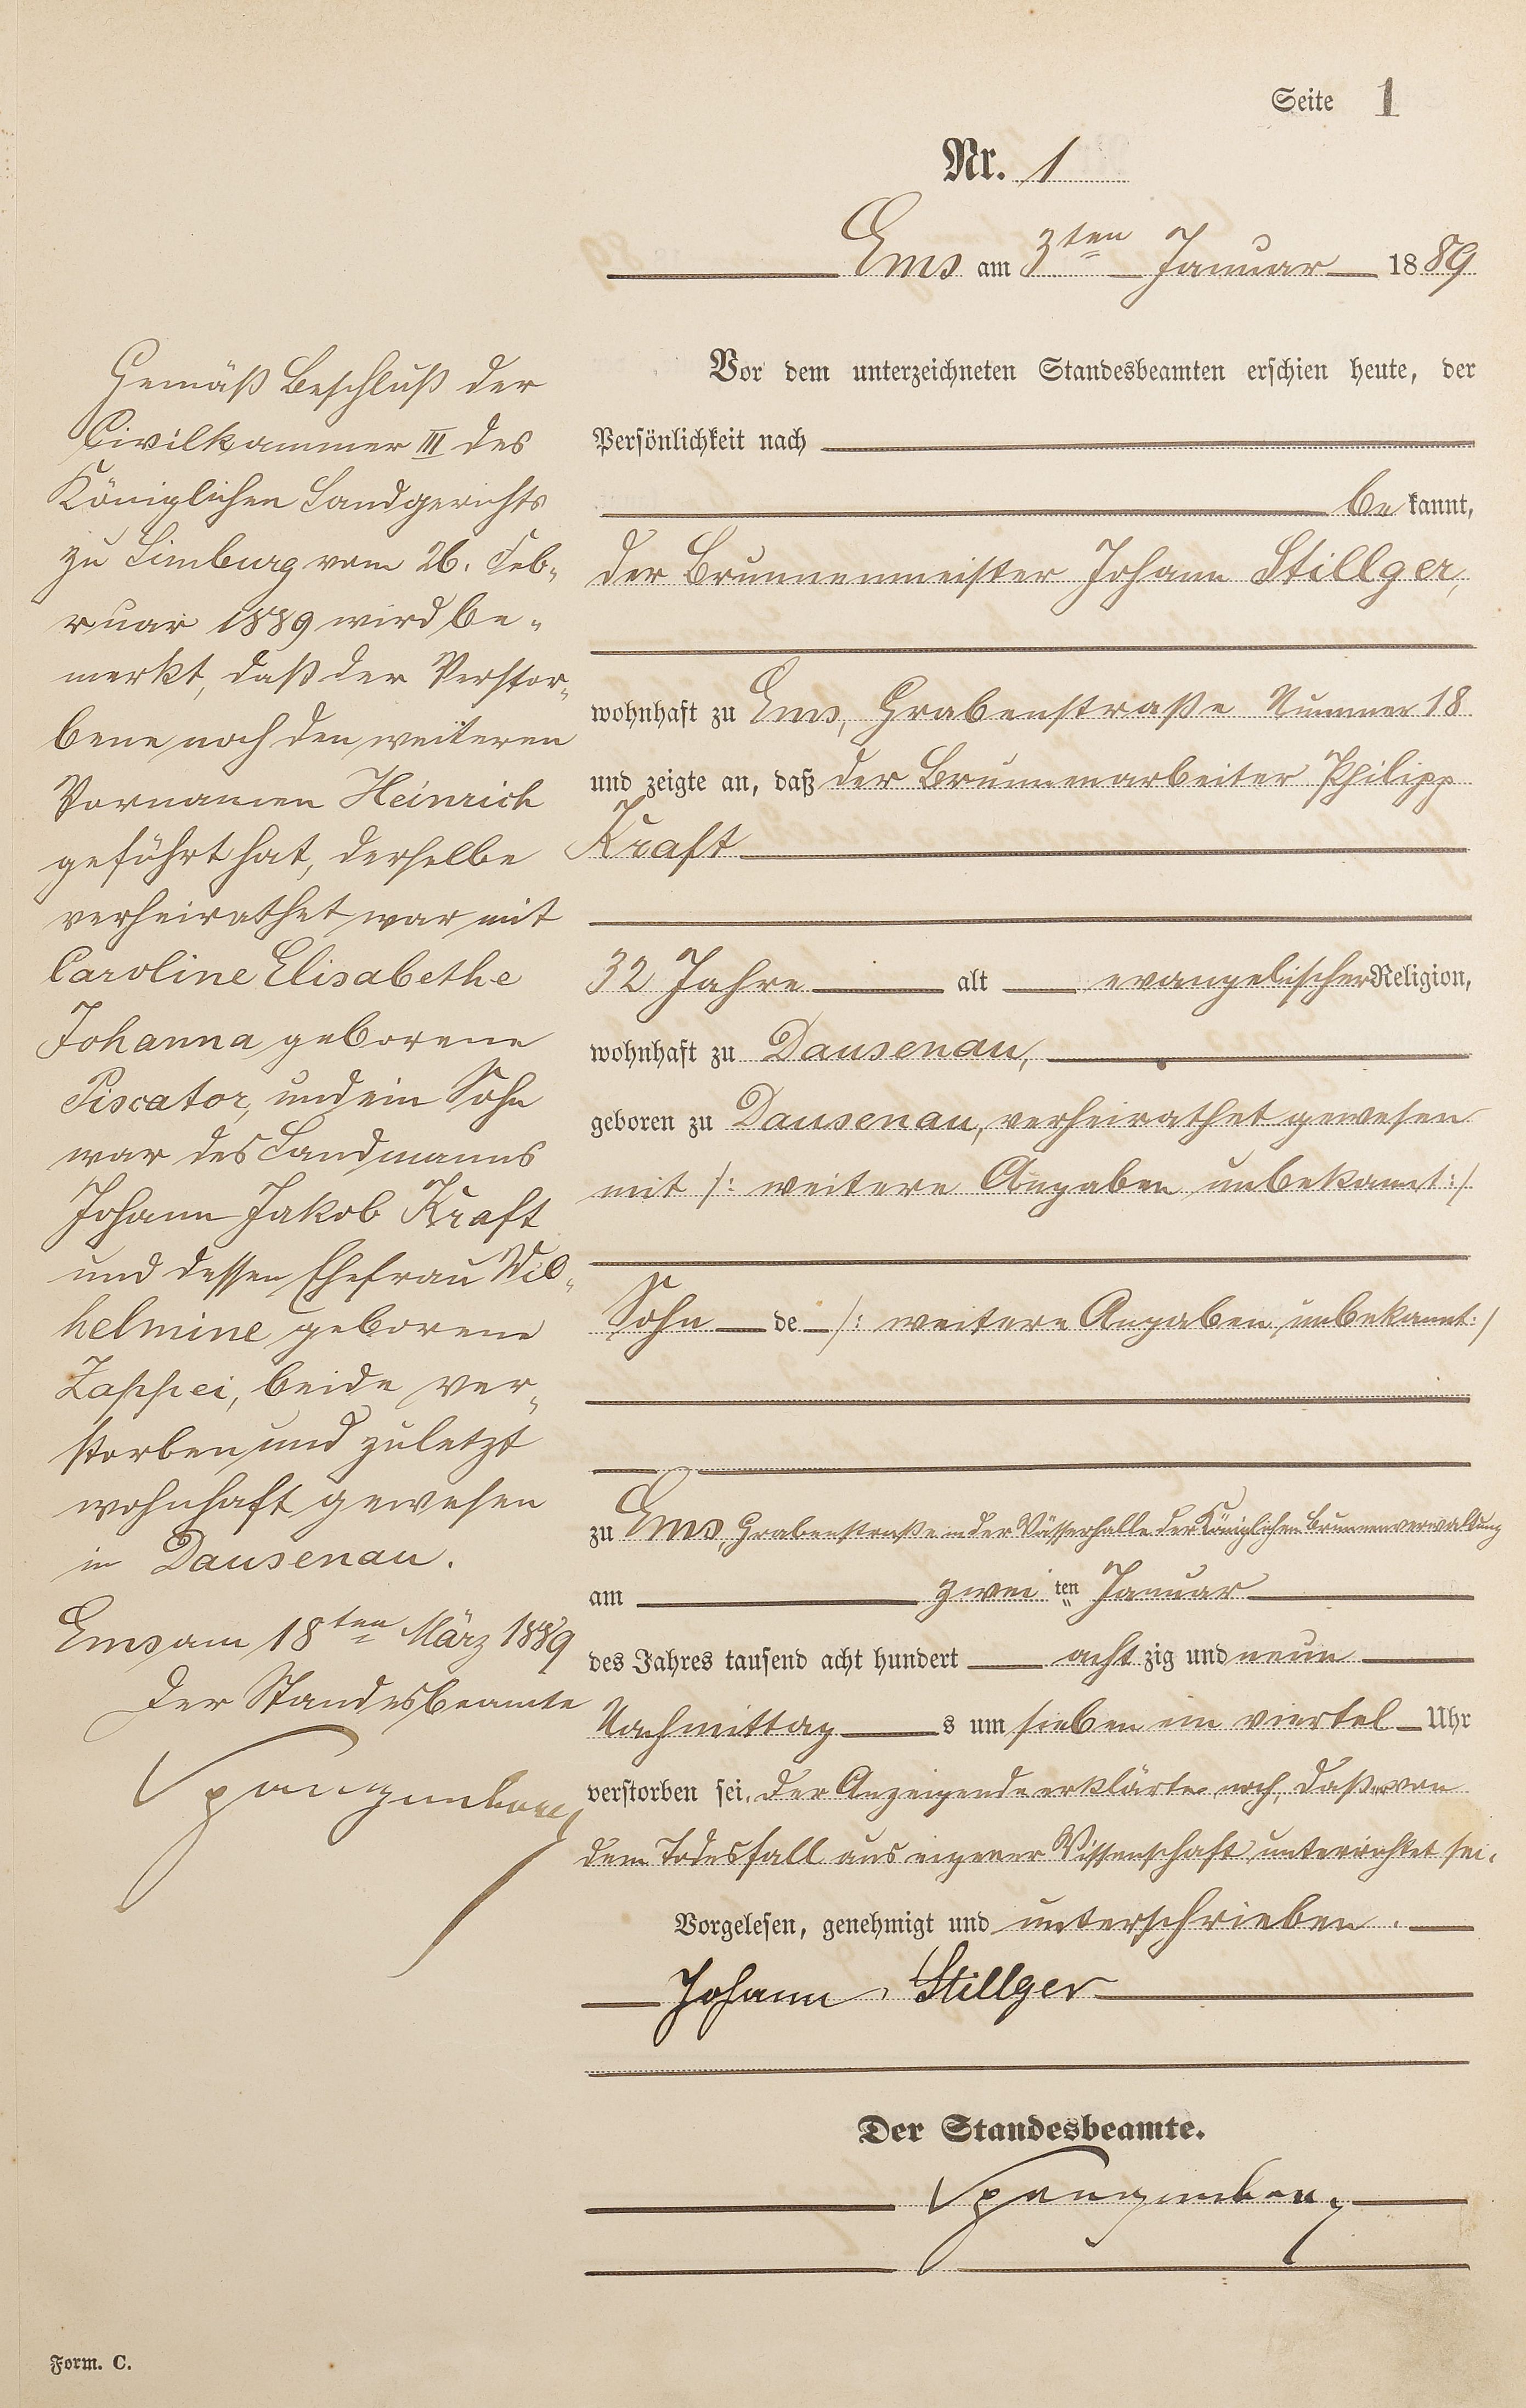 Seite 1
Nr. 1
Ems am 3ten Januar 1889
Vor dem unterzeichneten Standesbeamten erschien heute, der
Persönlichkeit nach
be kannt,
der Brunnenmeister Johann Stillger,
wohnhaft zu Ems, Grabenstraße Nummer 18
und zeigte an, daß der Brunnenarbeiter Philipp
Kraft
32 Jahre alt evangelischer Religion,
wohnhaft zu Dausenau,
geboren zu Dausenau, verheirathet gewesen
mit /: weitere Angaben unbekannt :/
Sohn de /: weitere Angaben unbekannt :/
zu Ems, Grabenstraße in der Füllhalle der Königlichen Brunnenverwaltung
am zwei ten Januar
des Jahres tausend acht hundert acht zig und neun
Nachmittag s um sieben ein viertel Uhr
verstorben sei. Der Anzeigende erklärte noch, daß er von
dem Todesfall aus eigener Wissenschaft unterrichtet sei.
Vorgelesen, genehmigt und unterschrieben.
Johann Stillger
Der Standesbeamte.
Spangenberg
Gemäß Beschluß der
Civilkammer III des
Königlichen Landgerichts
zu Limburg vom 26. Feb-
ruar 1889 wird be-
merkt, daß der Verstor-
bene noch den weiteren
Vornamen Heinrich
geführt hat, derselbe
verheirathet war mit
Caroline Elisabethe
Johanna geborene
Piscator, und ein Sohn
war des Landmanns
Johann Jakob Kraft
und dessen Ehefrau Wil-
helmine geborene
Zappei, beide ver-
storben und zuletzt
wohnhaft gewesen
in Dausenau.
Ems am 18ten März 1889
Der Standesbeamte
Spangenberg
Form. C.